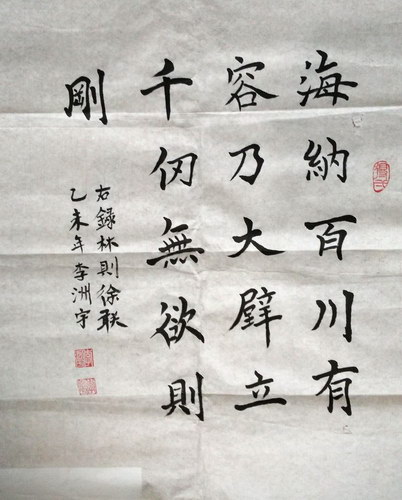 海納百川有
容乃大壁立
千仞無欲則
剛
右録林则徐联
乙未年李洲宇